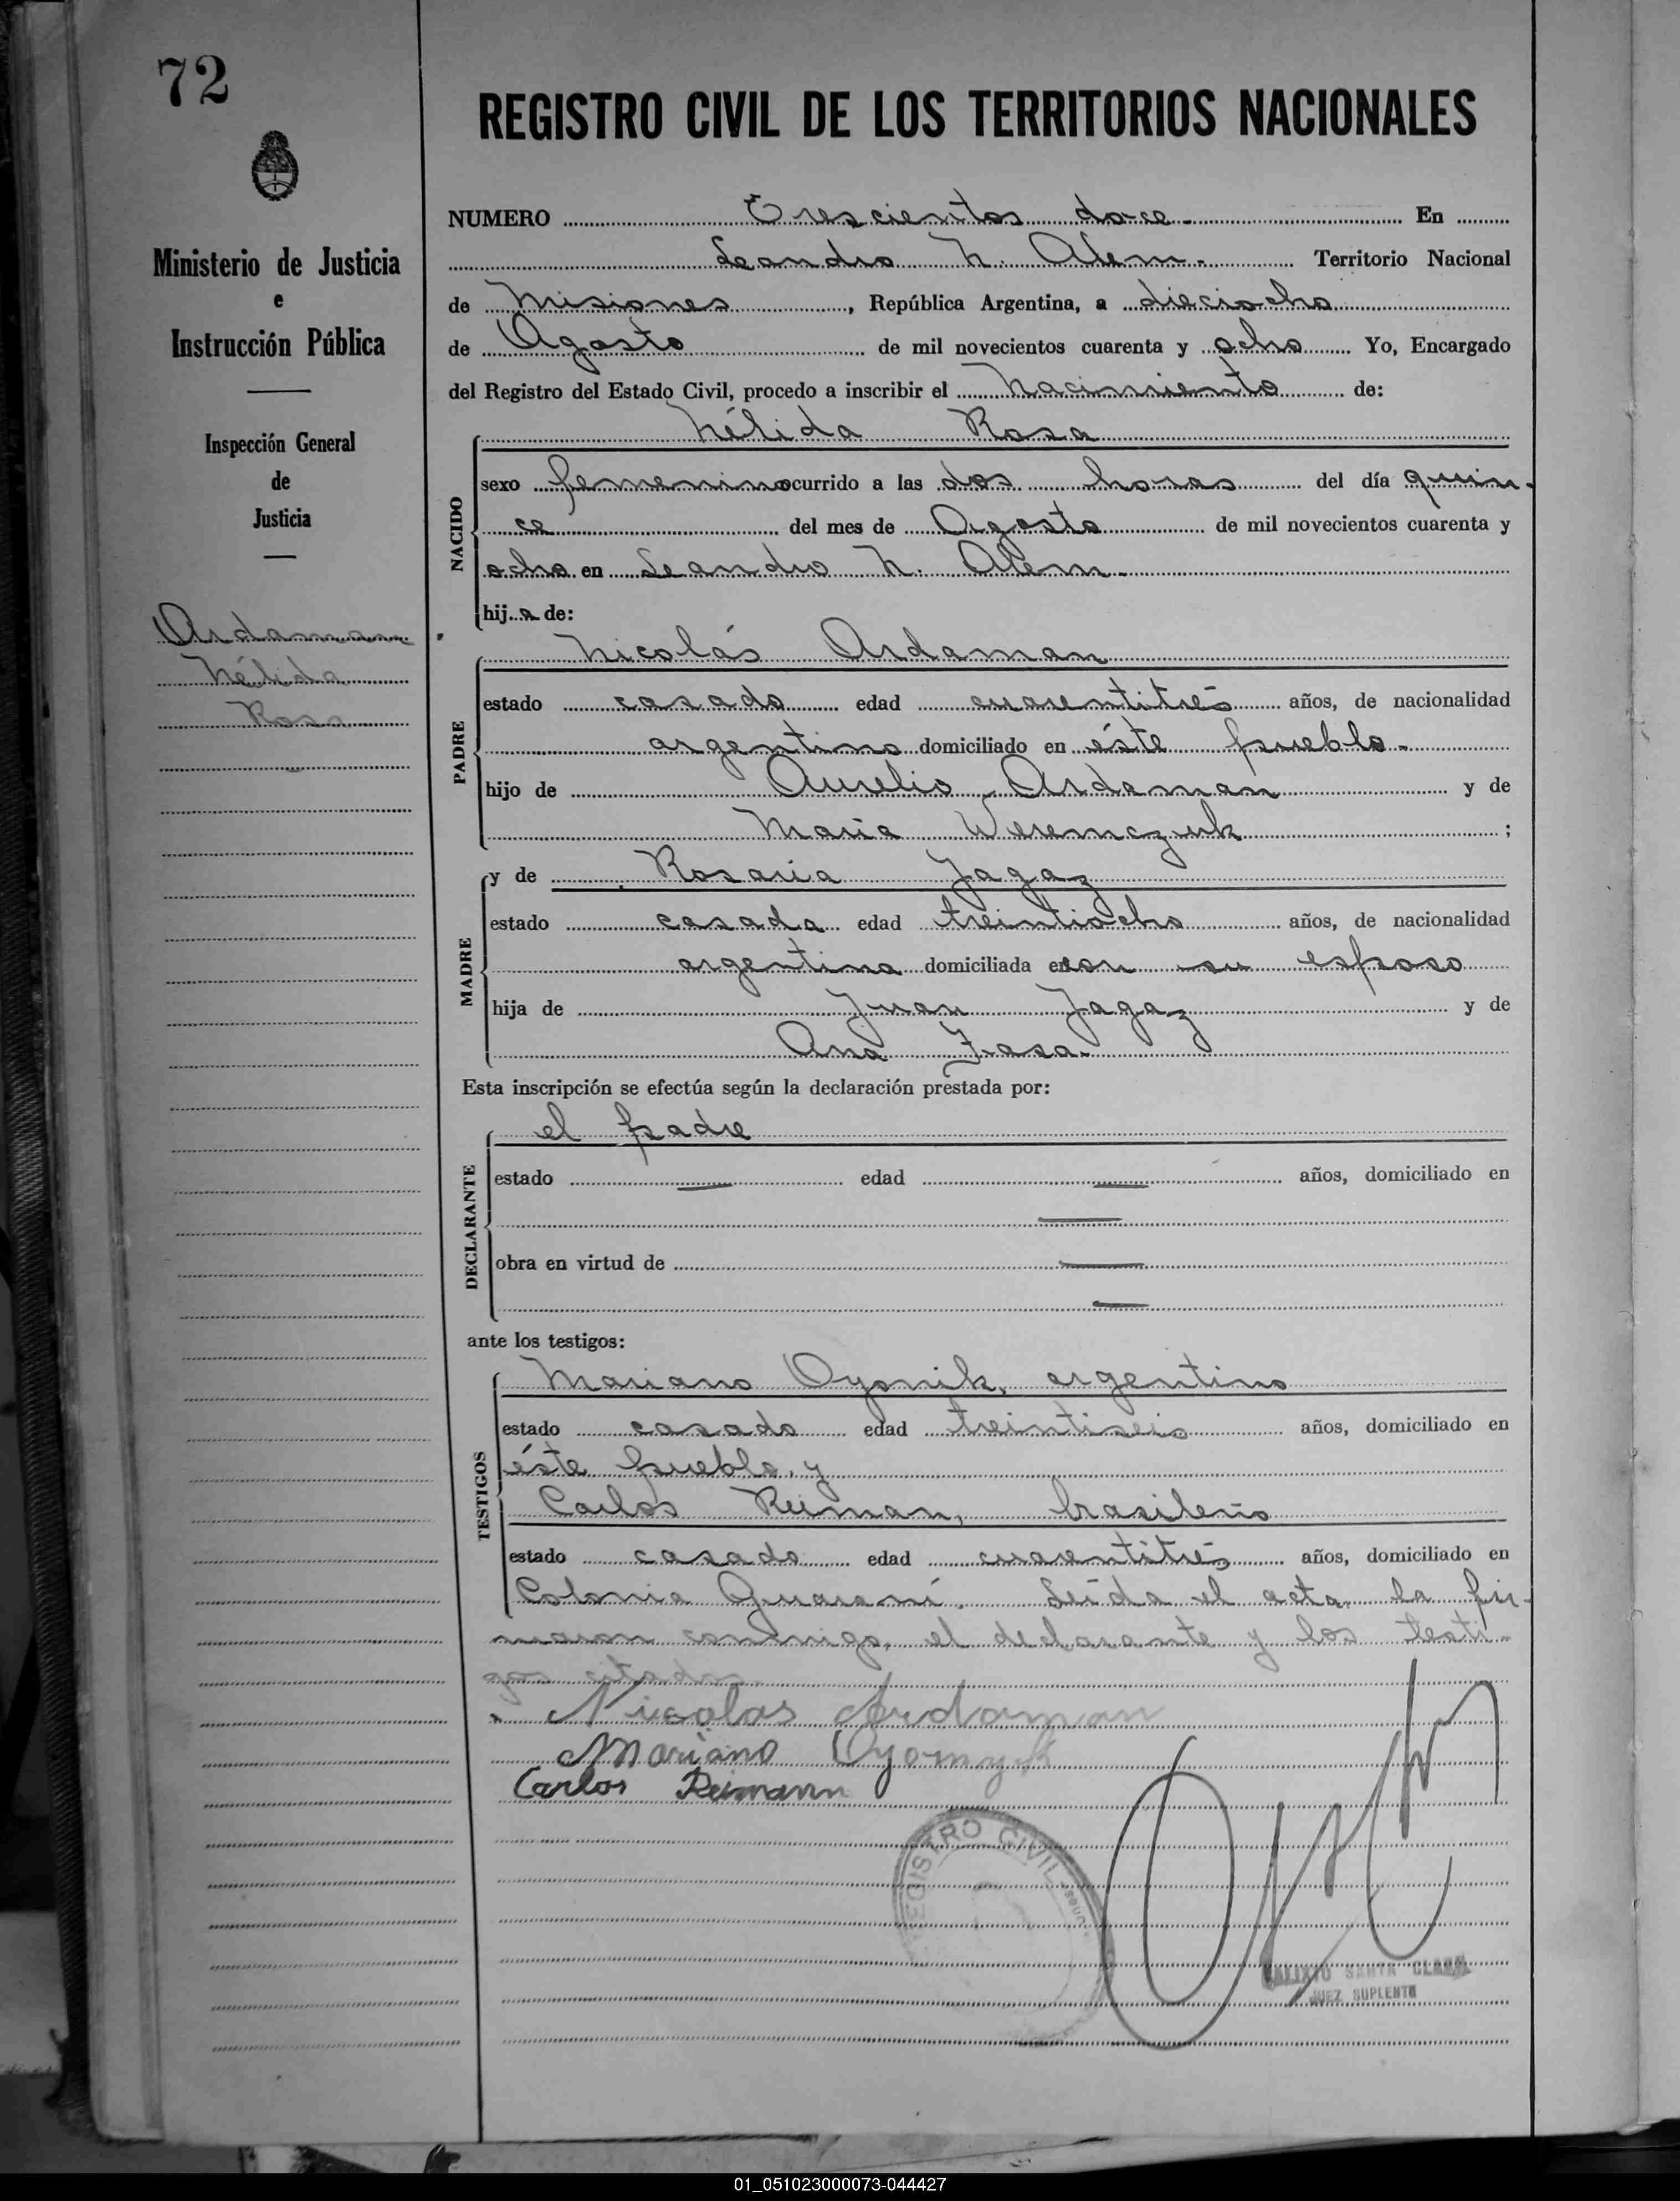 72
REGISTRO CIVIL DE LOS TERRITORIOS NACIONALES
Ministerio de Justicia
e
Instrucción Pública
Inspección General
de
Justicia
Ardaman
Nélida
Rosa
NUMERO Trescientos doce. En
Leandro N. Alem. Territorio Nacional
de Misiones, República Argentina, a dieciocho
de Agosto de mil novecientos cuarenta y ocho Yo, Encargado
del Registro del Estado Civil, procedo a inscribir el Nacimiento de:
NACIDO
Nélida Rosa
sexo femenino ocurrido a las dos horas del día quin-
ce del mes de Agosto de mil novecientos cuarenta y
ocho en Leandro N. Alem.
hija de:
PADRE
Nicolás Ardaman
estado casado edad cuarentitrés años, de nacionalidad
argentino domiciliado en éste pueblo.
hijo de Aurelio Ardaman y de
Maria Weremczuk ;
MADRE
y de Rosaria Jagaz
estado casada edad treintiocho años, de nacionalidad
argentina domiciliada en con su esposo
hija de Juan Jagaz y de
Ana
Esta inscripción se efectúa según la declaración prestada por:
DECLARANTE
el padre
estado — edad — años, domiciliado en
—
obra en virtud de —
—
ante los testigos:
TESTIGOS
Mariano Oyonik, argentino
estado casado edad treintiseis años, domiciliado en
éste pueblo, y
Carlos Reiman, brasileño
estado casado edad cuarentitrés años, domiciliado en
Colonia Guaraní. Leída el acta, la fir-
maron conmigo, el declarante y los testi-
gos citados.
Nicolas Ardaman
Mariano
Carlos Reimann
REGISTRO CIVIL
CALIXTO SANTA CLARA
JUEZ SUPLENTE
01_051023000073-044427